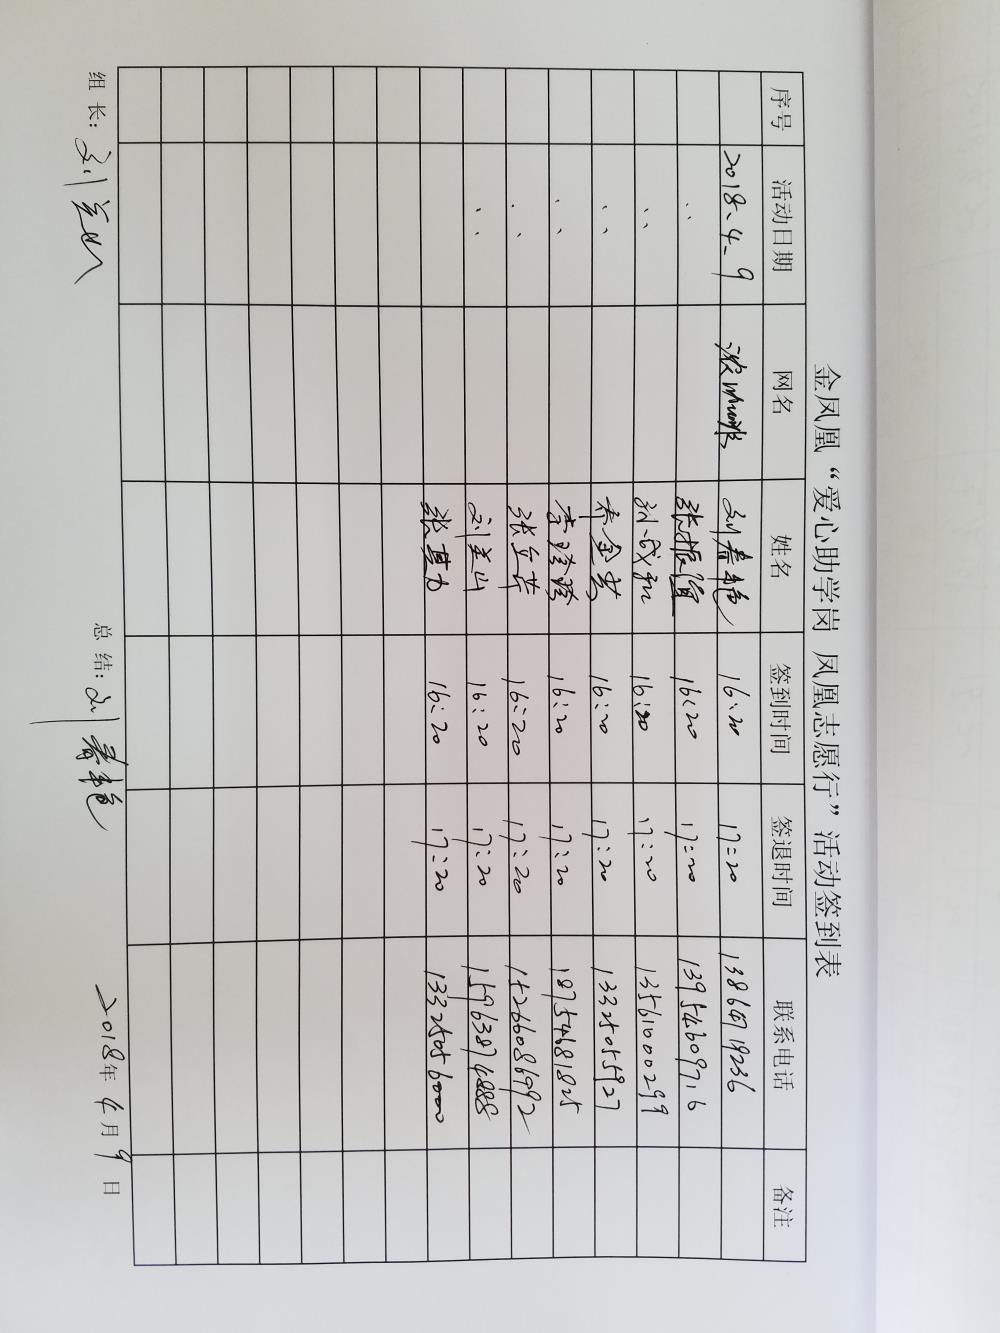 金凤凰“爱心助学岗 凤凰志愿行”活动签到表
序号 活动日期 网名 姓名 签到时间 签退时间 联系电话 备注
2018.4.9 刘春艳 16:20 17:20
〃 张振宣 16:20 17:20 13954609716
〃 刘成和 16:20 17:20 13561000299
〃 16:20 17:20 13325055927
〃 李珍珍 16:20 17:20 18754681825
〃 张立芹 16:20 17:20 15266086992
〃 刘兰山 16:20 17:20 15963874888
张其力 16:20 17:20 13325056000
组长: 刘兰山 总结: 刘春艳 2018年4月9日